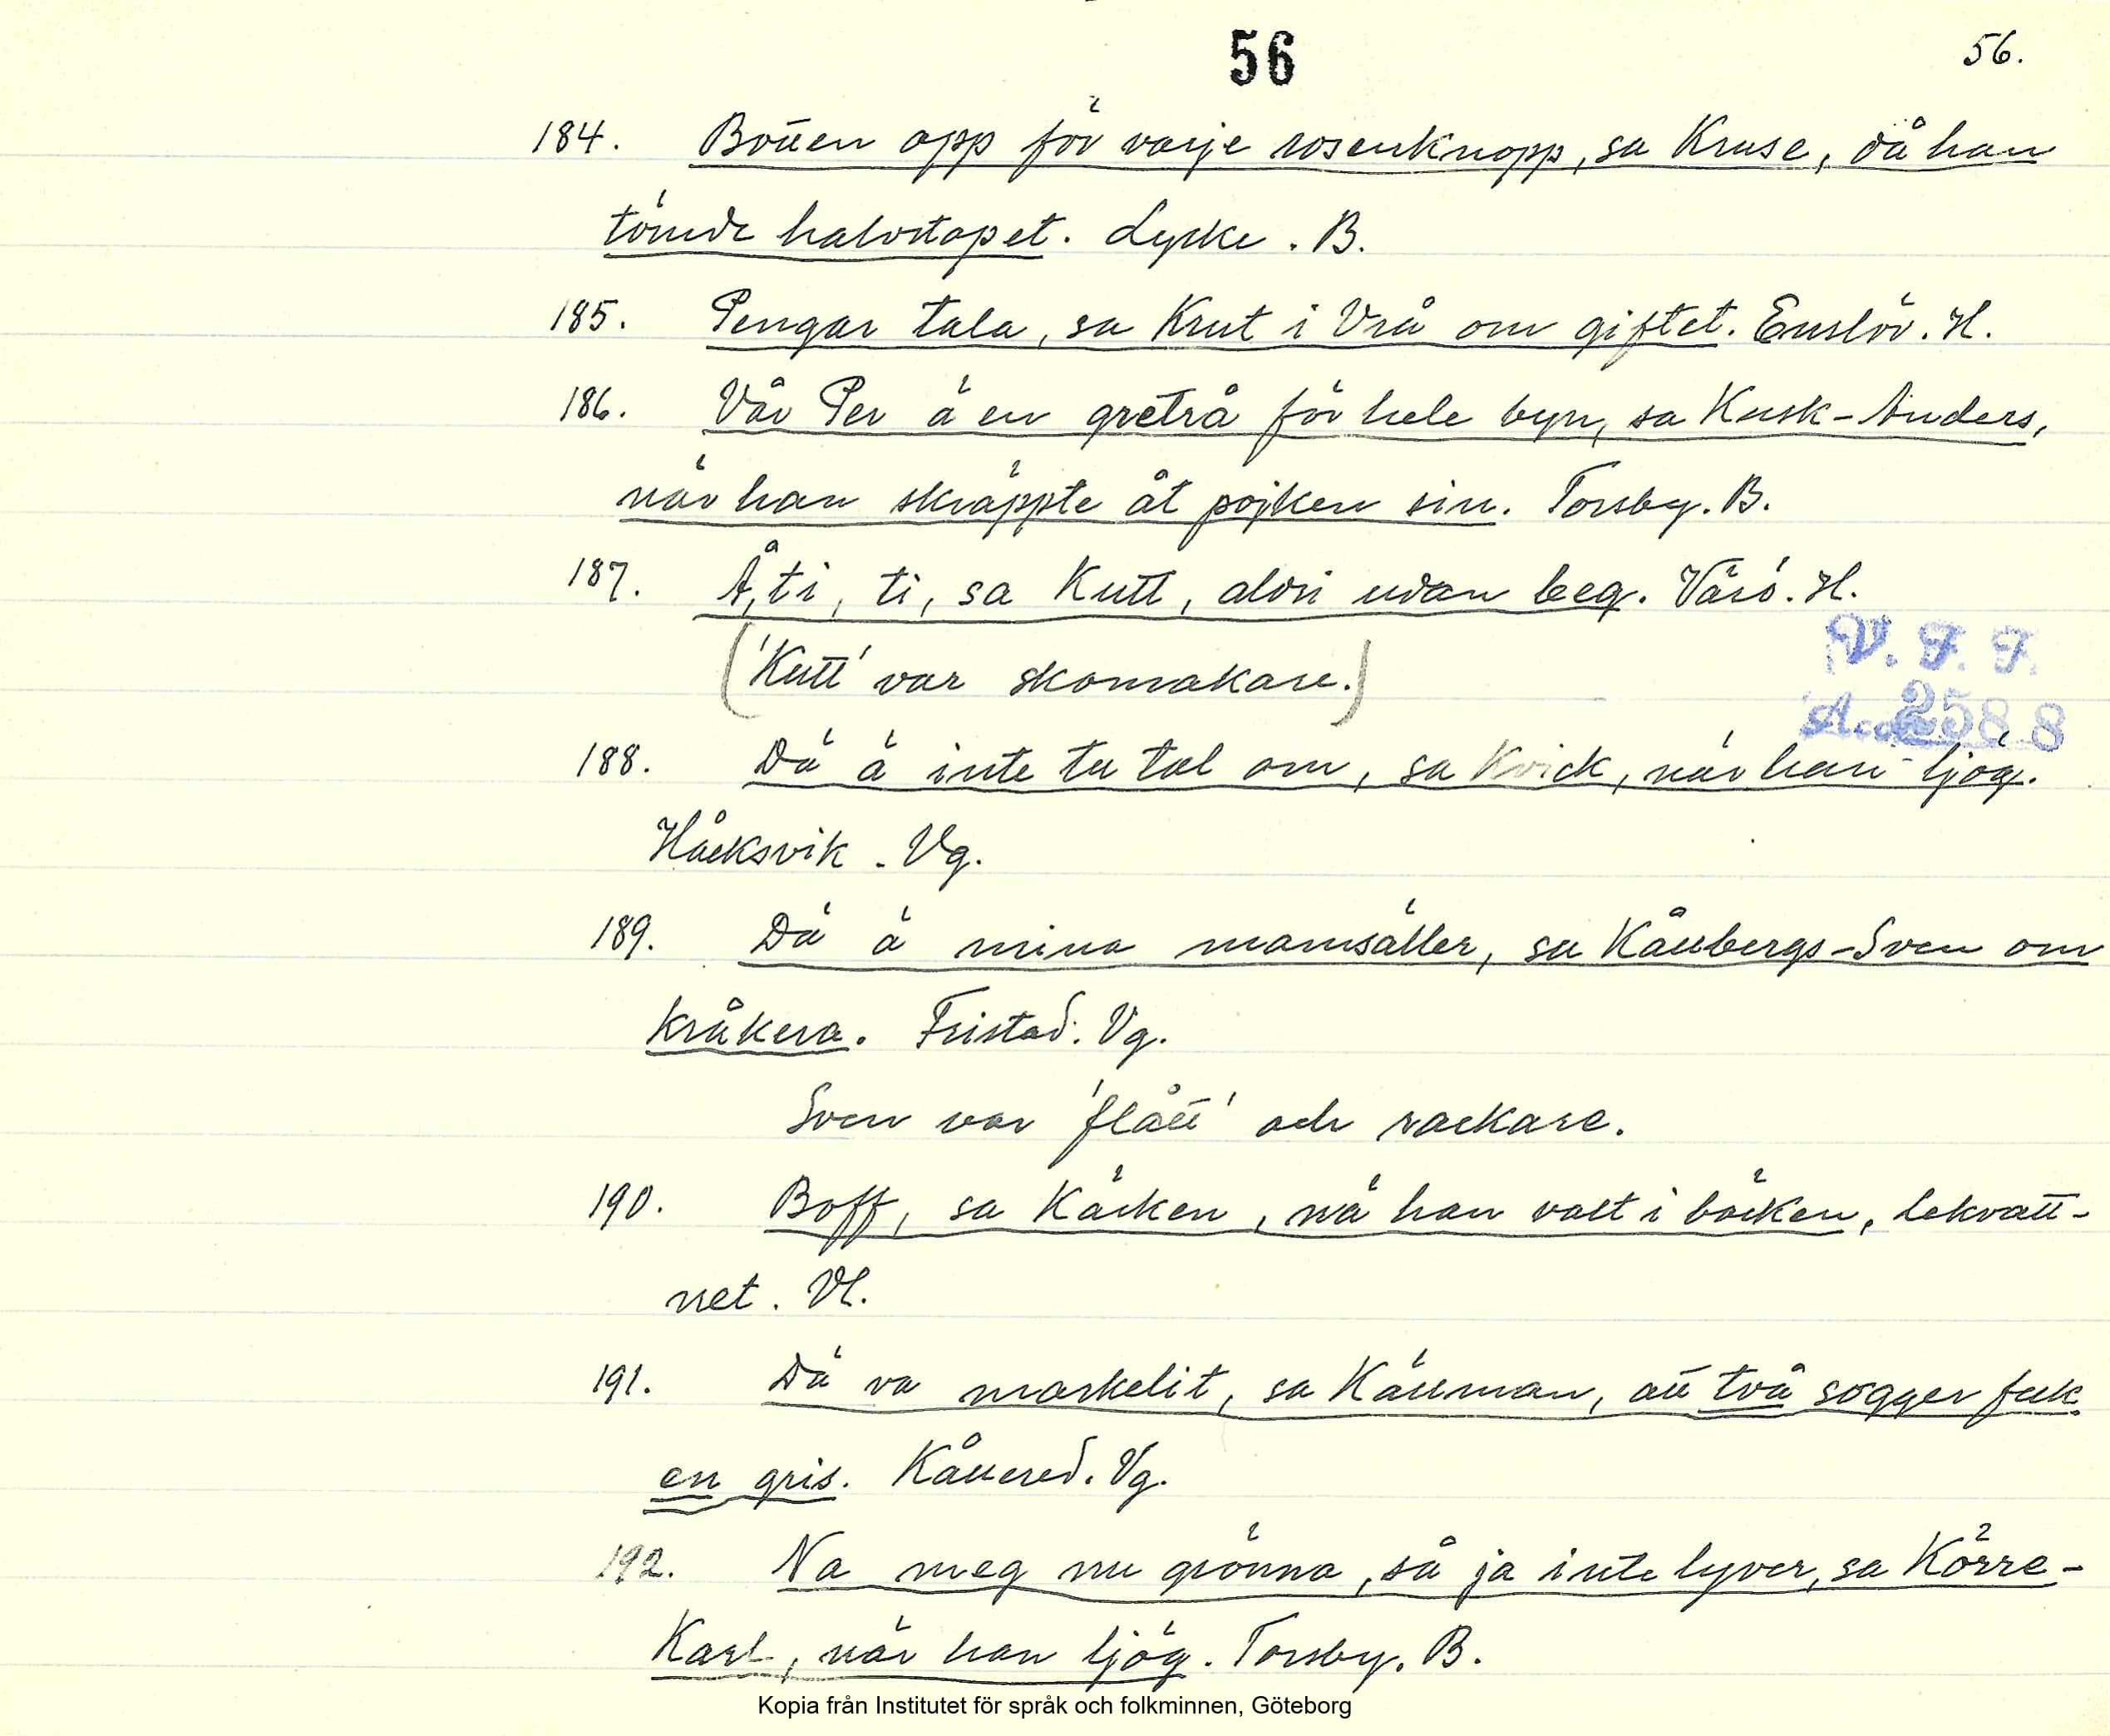 56
56.
184. Botten opp för varje rosenknopp, sa Kruse, då han
tömde halvstopet. Lycke. B.
185. Pengar tala, sa Knut i Vrå om giftet. Enslöv. H.
186. Vår Per ä en greträ för hele byn, sa Kusk-Anders,
när han skräppte åt pojken sin. Torsby. B.
187. Å, ti, ti, sa Kutt, aldri udan beg. Värö. H.
('Kutt' var skomakare.)
V. F. F.
Acc. 2588
188. Dä ä inte te tal om, sa Kvick, när han ljög.
Håcksvik. Vg.
189. Dä ä mina mamsäller, sa Kållbergs-Sven om
kråkera. Fristad. Vg.
Sven var 'flått' och rackare.
190. Boff, sa Käcken, nä han valt i bäcken, Lekvatt-
net. Vl.
191. Dä va markelit, sa Källman, att två sögger fek
en gris. Kållered. Vg.
192. Na meg nu grönna, så ja inte lyver, sa Körre-
Karl, när han ljög. Torsby. B.
Kopia från Institutet för språk och folkminnen, Göteborg